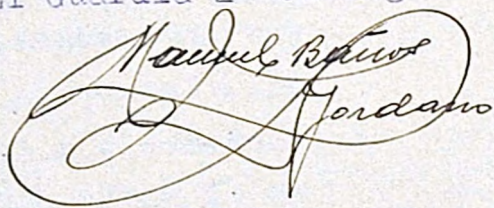 Manuel Baños
Jordano